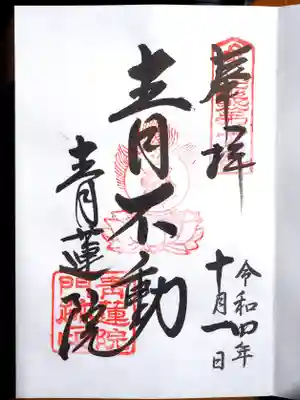 奉拝
令和四年
十月一日
青不動
青蓮院
青蓮院
門跡印